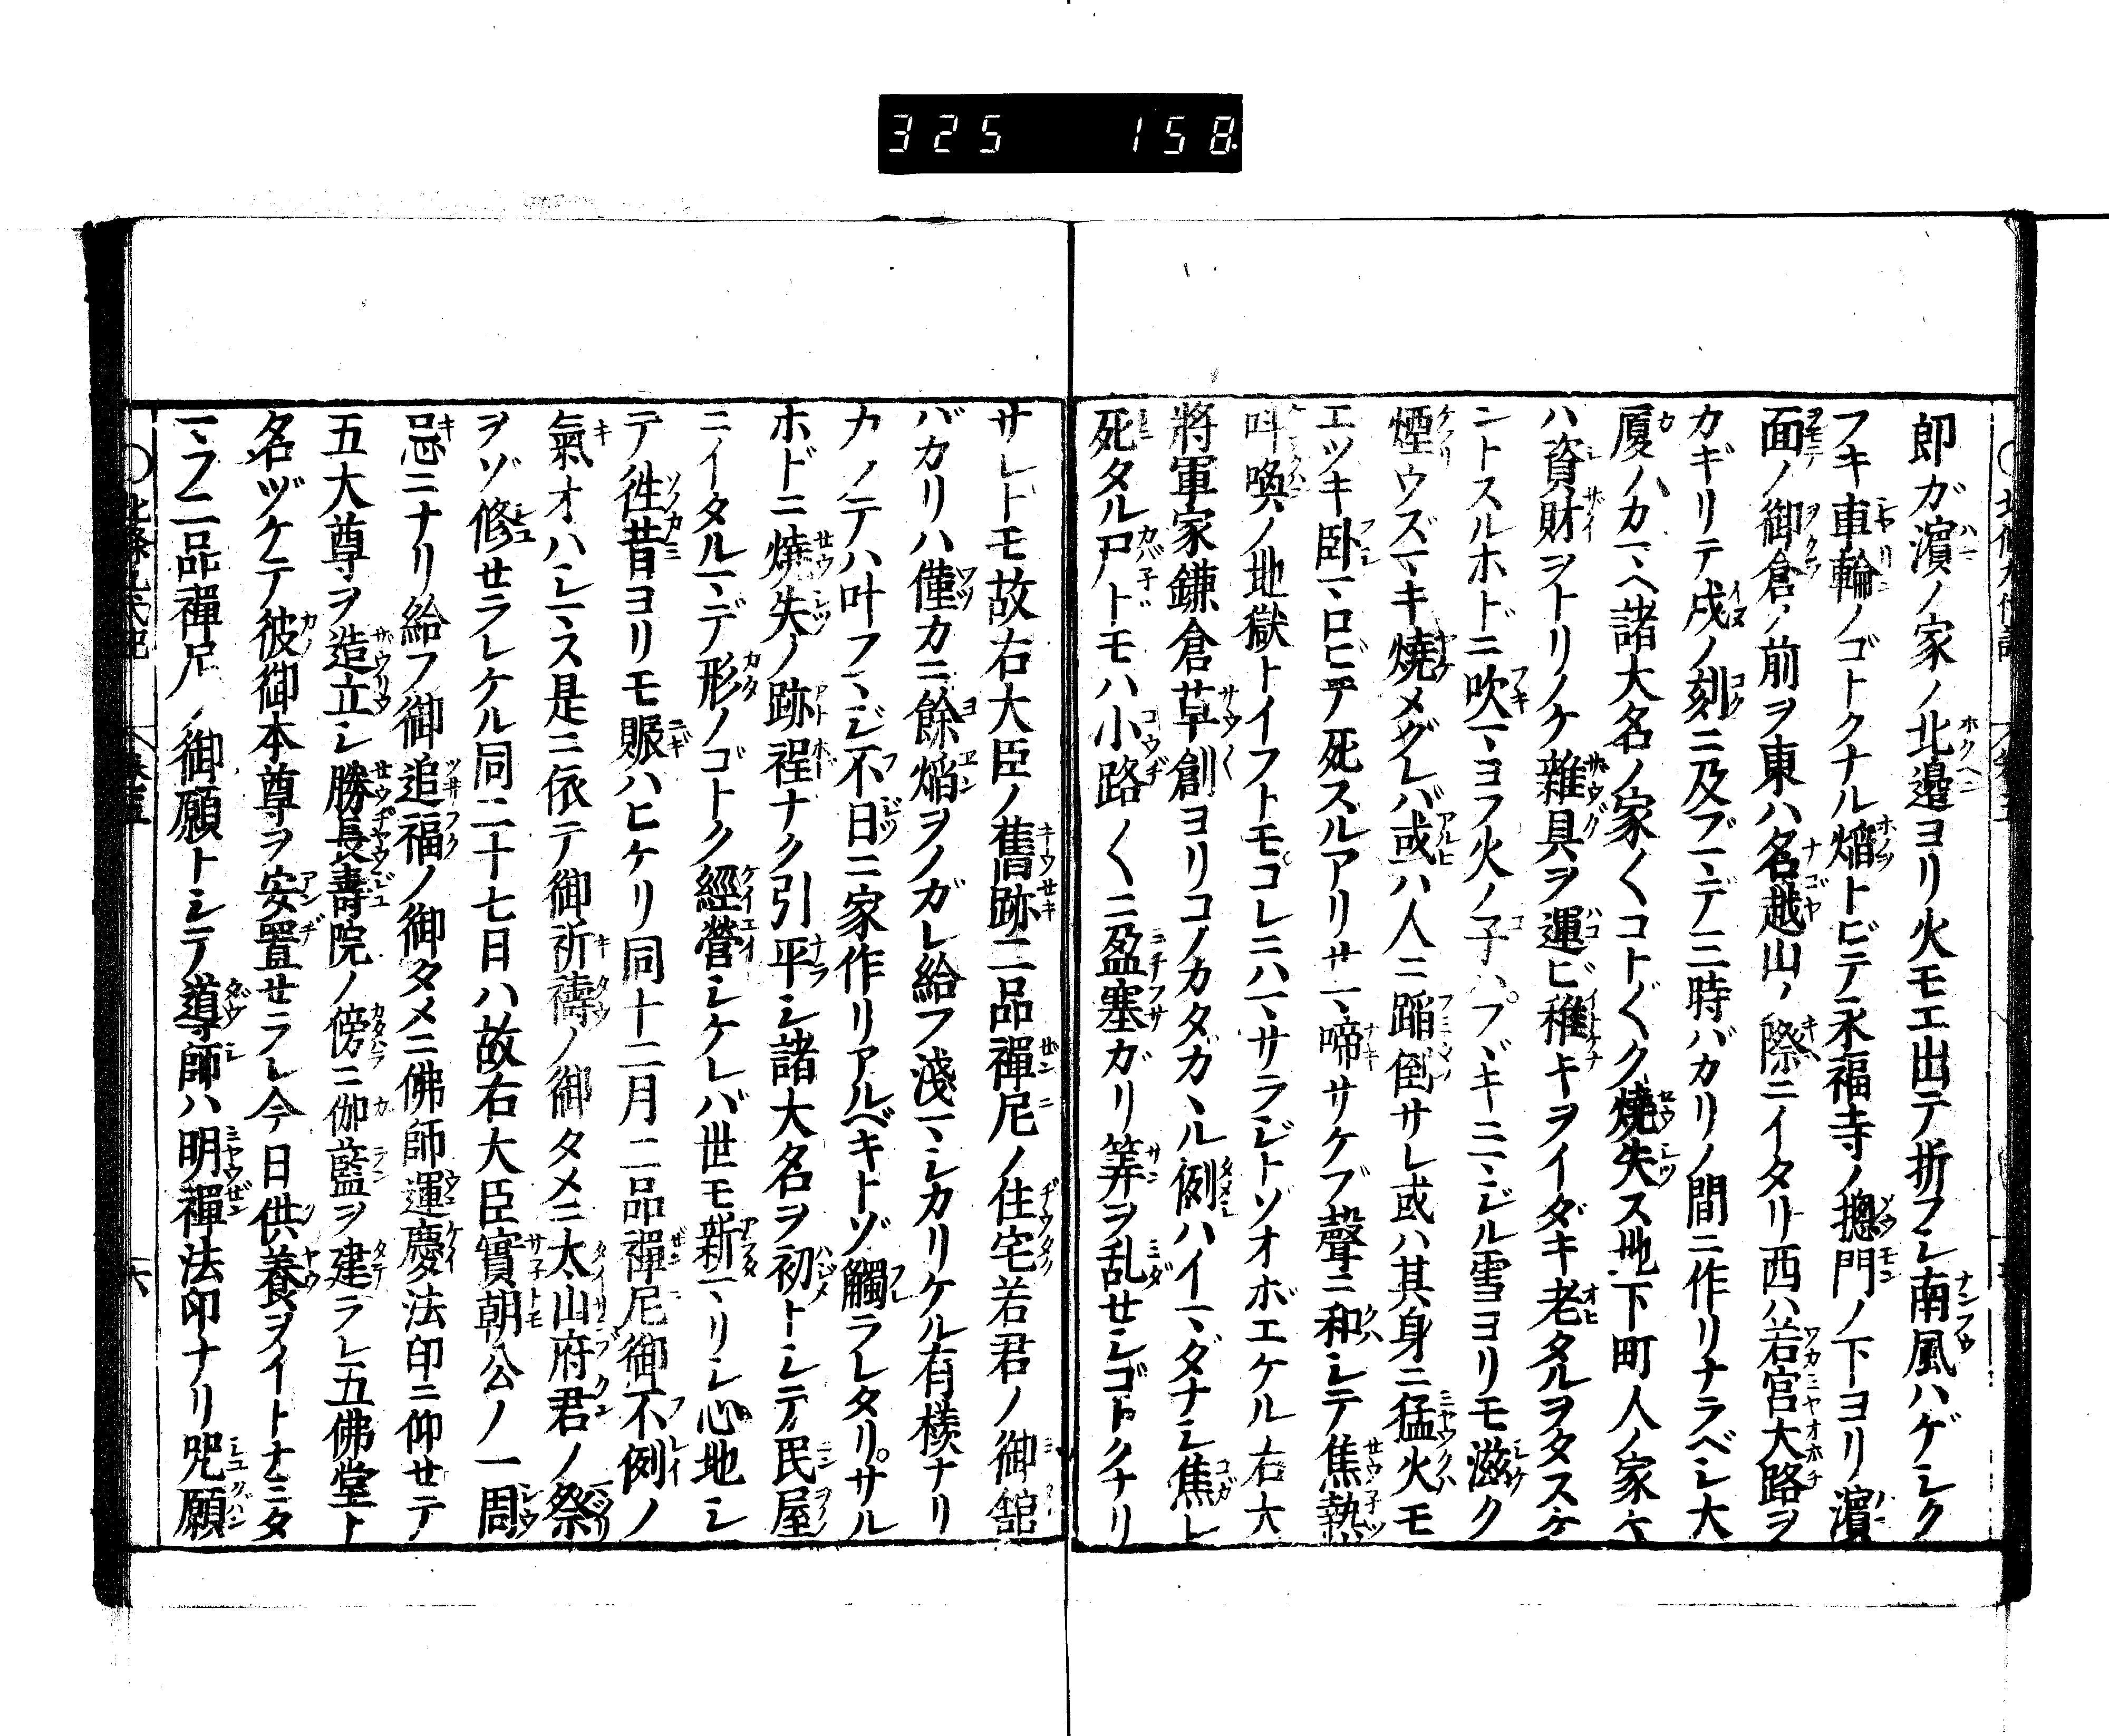 325 158
即ガ濵ノ家ノ北邉ヨリ火モエ出テ折フシ南風ハゲシク
フキ車輪ノゴトクナル焔トビテ永福寺ノ摠門ノ下ヨリ濵
面ノ御倉ノ前ヲ東ハ名越山ノ際ニイタリ西ハ若宮大路ヲ
カギリテ戌ノ刻ニ及ブマデ三時バカリノ間ニ作リナラベシ大
厦ノカマヘ諸大名ノ家〱コト〲ク焼失ス地下町人ノ家ケ
ハ資財ヲトリノケ雜具ヲ運ビ稚キヲイダキ老タルヲタスケ
ントスルホドニ吹マヨフ火ノ子ハフヾキニミジル雪ヨリモ滋ク
煙ウズマキ燒メグレバ或ハ人ニ蹈倒サレ或ハ其身ニ猛火モ
エツキ卧マロビテ死スルアリサマ啼サケブ聲ニ和シテ焦熱
叫喚ノ地獄トイフトモコレニハマサラジトゾオボエケル右大
將軍家鎌倉草創ヨリコノカタガヽル例ハイマダナシ焦レ
死タル尸ドモハ小路〱ニ盈塞ガリ筭ヲ乱せシゴトクナリ
サレトモ故右大臣ノ舊跡二品禪尼ノ住宅若君ノ御舘
バカリハ僅カニ餘焔ヲノガレ給フ淺マシカリケル有樣ナリ
カクテハ叶フマジ不日ニ家作リアルベキトゾ觸ラレタリサル
ホドニ燒失ノ跡程ナク引平シ諸大名ヲ初トシテ民屋
ニイタルマデ形ノゴトク經營シケレバ世モ新マリシ心地シ
テ徃昔ヨリモ賑ハヒケリ同十二月二品禪尼御不例ノ
氣オハシマス是ニ依テ御祈禱ノ御タメニ太山府君ノ祭
ヲゾ修せラレケル同二十七日ハ故右大臣實朝公ノ一周
忌ニナリ給フ御追福ノ御タメニ佛師運慶法印ニ仰せテ
五大尊ヲ造立シ勝長壽院ノ傍ニ伽藍ヲ建ラレ五佛堂ト
名ヅケテ彼御本尊ヲ安置せラレ今日供養ヲイトナミタ
マフ二品禪尼ノ御願トシテ導師ハ明禪法印ナリ咒願